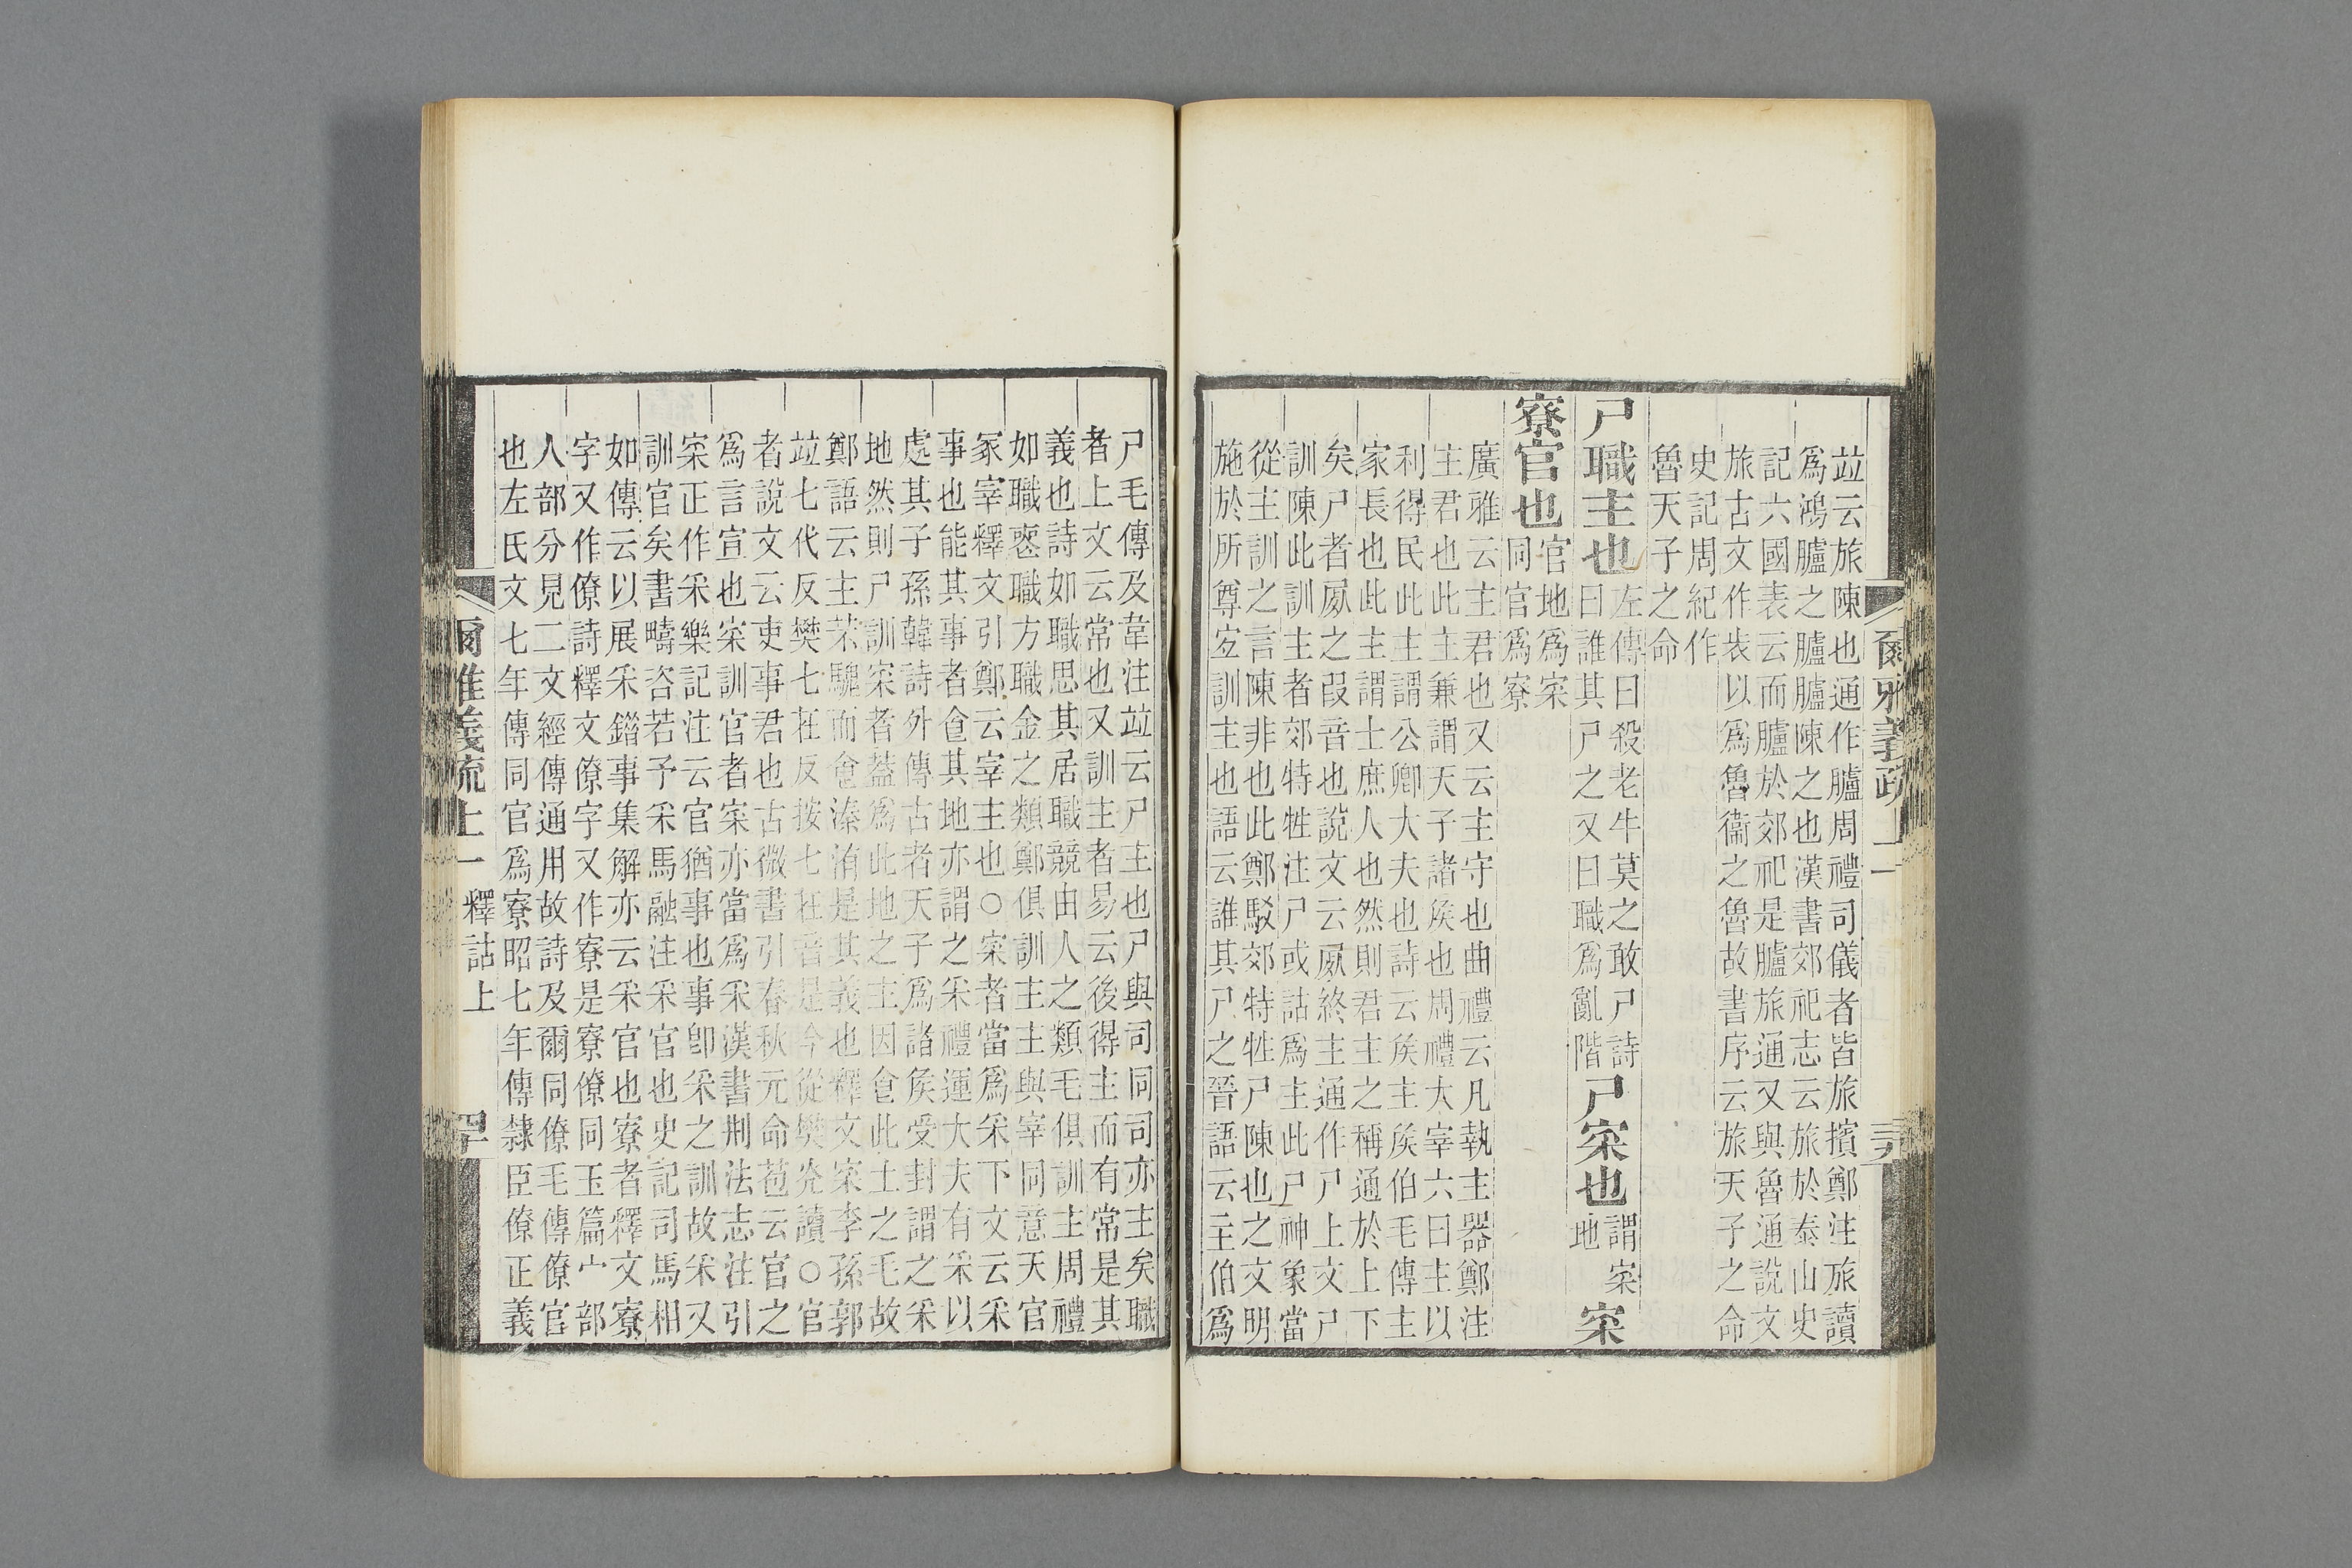 竝云旅陳也通作臚周禮司儀者皆旅擯鄭注旅讀
爲鴻臚之臚臚陳之也漢書郊祀志云旅於泰山史
記六國表云而臚於郊祀是臚旅通又與魯通說文
旅古文作𣥏以爲魯衞之魯故書序云旅天子之命
史記周紀作
魯天子之命
尸職主也左傳曰殺老牛莫之敢尸詩
曰誰其尸之又曰職爲亂階
尸寀也謂寀
地
寀
寮官也官地爲寀
同官爲寮
廣雅云主君也又云主守也曲禮云凡執主器鄭注
主君也此主兼謂天子諸矦也周禮大宰六曰主以
利得民此主謂公卿大夫也詩云矦主矦伯毛傳主
家長也此主謂士庶人也然則君主之稱通於上下
矣尸者𡰥之叚音也說文云𡰥終主通作尸上文尸
訓陳此訓主者郊特牲注尸或詁爲主此尸神象當
從主訓之言陳非也此鄭駁郊特牲尸陳也之文明
施於所尊宐訓主也語云誰其尸之晉語云主伯爲
尸毛傳及韋注竝云尸主也尸與司同司亦主矣職
者上文云常也又訓主者易云後得主而有常是其
義也詩如職思其居職競由人之類毛俱訓主周禮
如職喪職方職金之類鄭俱訓主主與宰同意天官
冢宰釋文引鄭云宰主也○寀者當爲采下文云采
事也能其事者食其地亦謂之采禮運大夫有采以
處其子孫韓詩外傳古者天子爲諸矦受封謂之采
地然則尸訓寀者葢爲此地之主因食此土之毛故
鄭語云主芣騩而食溱洧是其義也釋文寀李孫郭
竝七代反樊七在反按七在音是今從樊光讀○官
者說文云吏事君也古微書引春秋元命苞云官之
爲言宣也寀訓官者寀亦當爲采漢書刑法志注引
寀正作采樂記注云官猶事也事卽采之訓故采又
訓官矣書疇咨若予采馬融注采官也史記司馬相
如傳云以展采錯事集解亦云采官也寮者釋文寮
字又作僚詩釋文僚字又作寮是寮僚同玉篇宀部
人部分見二文經傳通用故詩及爾同僚毛傳僚官
也左氏文七年傳同官爲寮昭七年傳隸臣僚正義
爾雅義疏上一
釋詁上